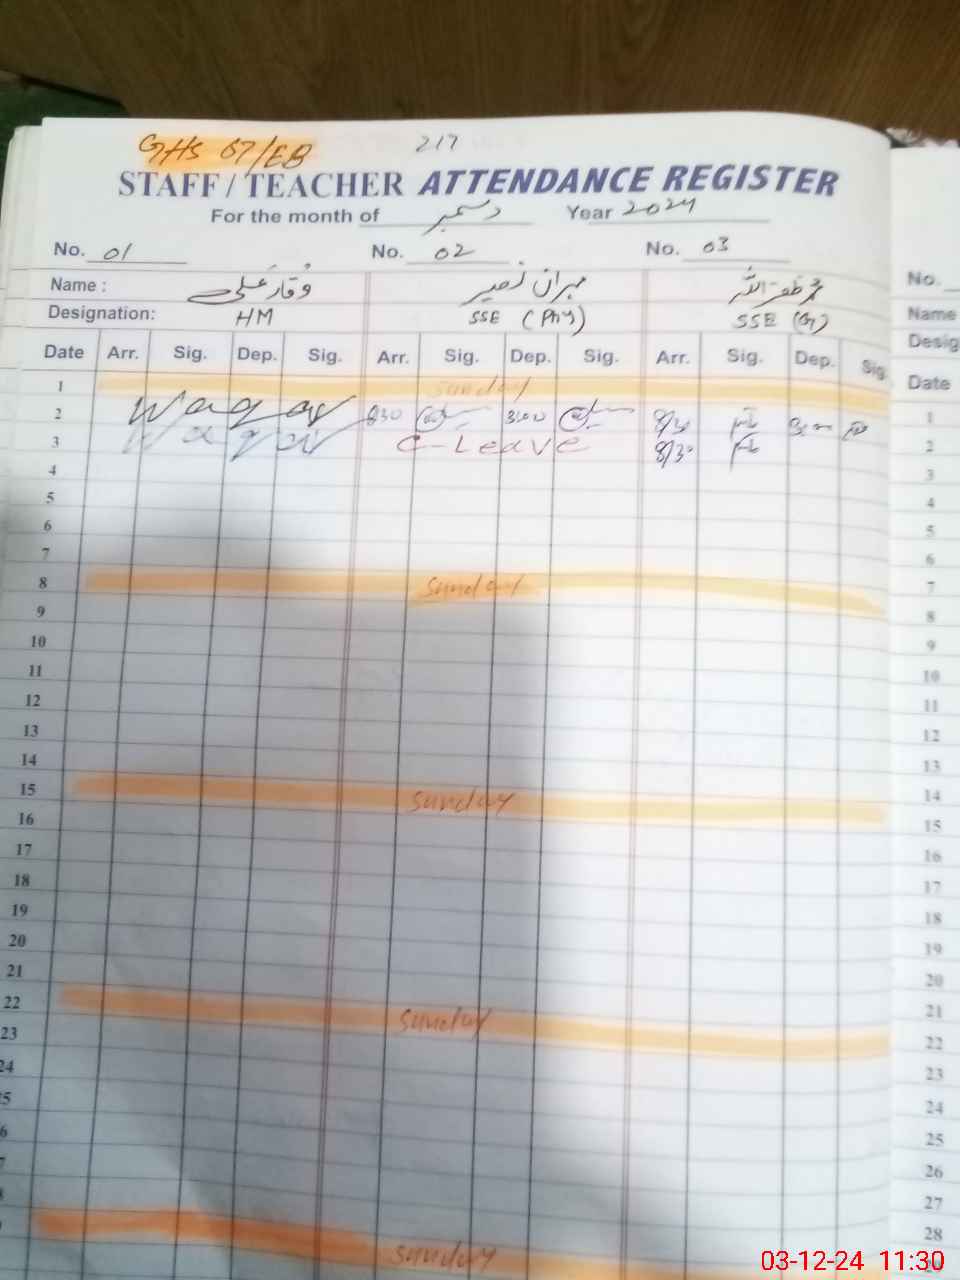 GHS 67/EB 217
STAFF / TEACHER ATTENDANCE REGISTER
For the month of دسمبر Year 2024
No. 01 No. 02 No. 03 No.
Name : وقار علی مہران نصیر محمد ظفر اللہ Name
Designation: HM SSE (Phy) SSE (G) Desig
Date Arr. Sig. Dep. Sig. Arr. Sig. Dep. Sig. Arr. Sig. Dep. Sig. Date
1 Sunday 1
2 Waqar 830 3:00 8/30 3:00 2
3 Waqar C-Leave 8/30 3
4 4
5 5
6 6
7 7
8 Sunday 8
9 9
10 10
11 11
12 12
13 13
14 14
15 Sunday 15
16 16
17 17
18 18
19 19
20 20
21 21
22 Sunday 22
23 23
24 24
5 25
6 26
7 27
8 28
Sunday
03-12-24 11:30